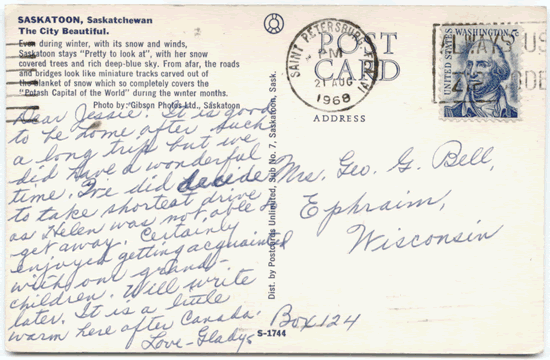 SASKATOON, Saskatchewan
The City Beautiful.
Even during winter, with its snow and winds,
Saskatoon says "Pretty to look at", with her snow
covered trees and rich deep-blue sky. From afar, the roads
and bridges look like miniature tracks carved out of
the blanket of snow which so completely covers the
"Potash Capital of the World" during the winter months.
Photo by: Gibson Photos Ltd., Saskatoon
Dear Jessie: It is good
to be home after such
a long trip but we
did have a wonderful
time. I've did decide
to take shortest drive
as Helen was not able to
get away. Certainly
enjoyed getting acquainted
with our grand-
children. Will write
later. It is a little
warm here after Canada.
Love - Gladys
Dist. by Postcards Unlimited, Sub No. 7, Saskatoon, Sask.
S-1744
POST
CARD
ADDRESS
SAINT PETERSBURG, FLA
AM
21 AUG
1968
ALWAYS US
ZIP CODE
UNITED STATES
WASHINGTON 5c
Mrs. Geo. G. Bell,
Ephraim,
Wisconsin
Box 124